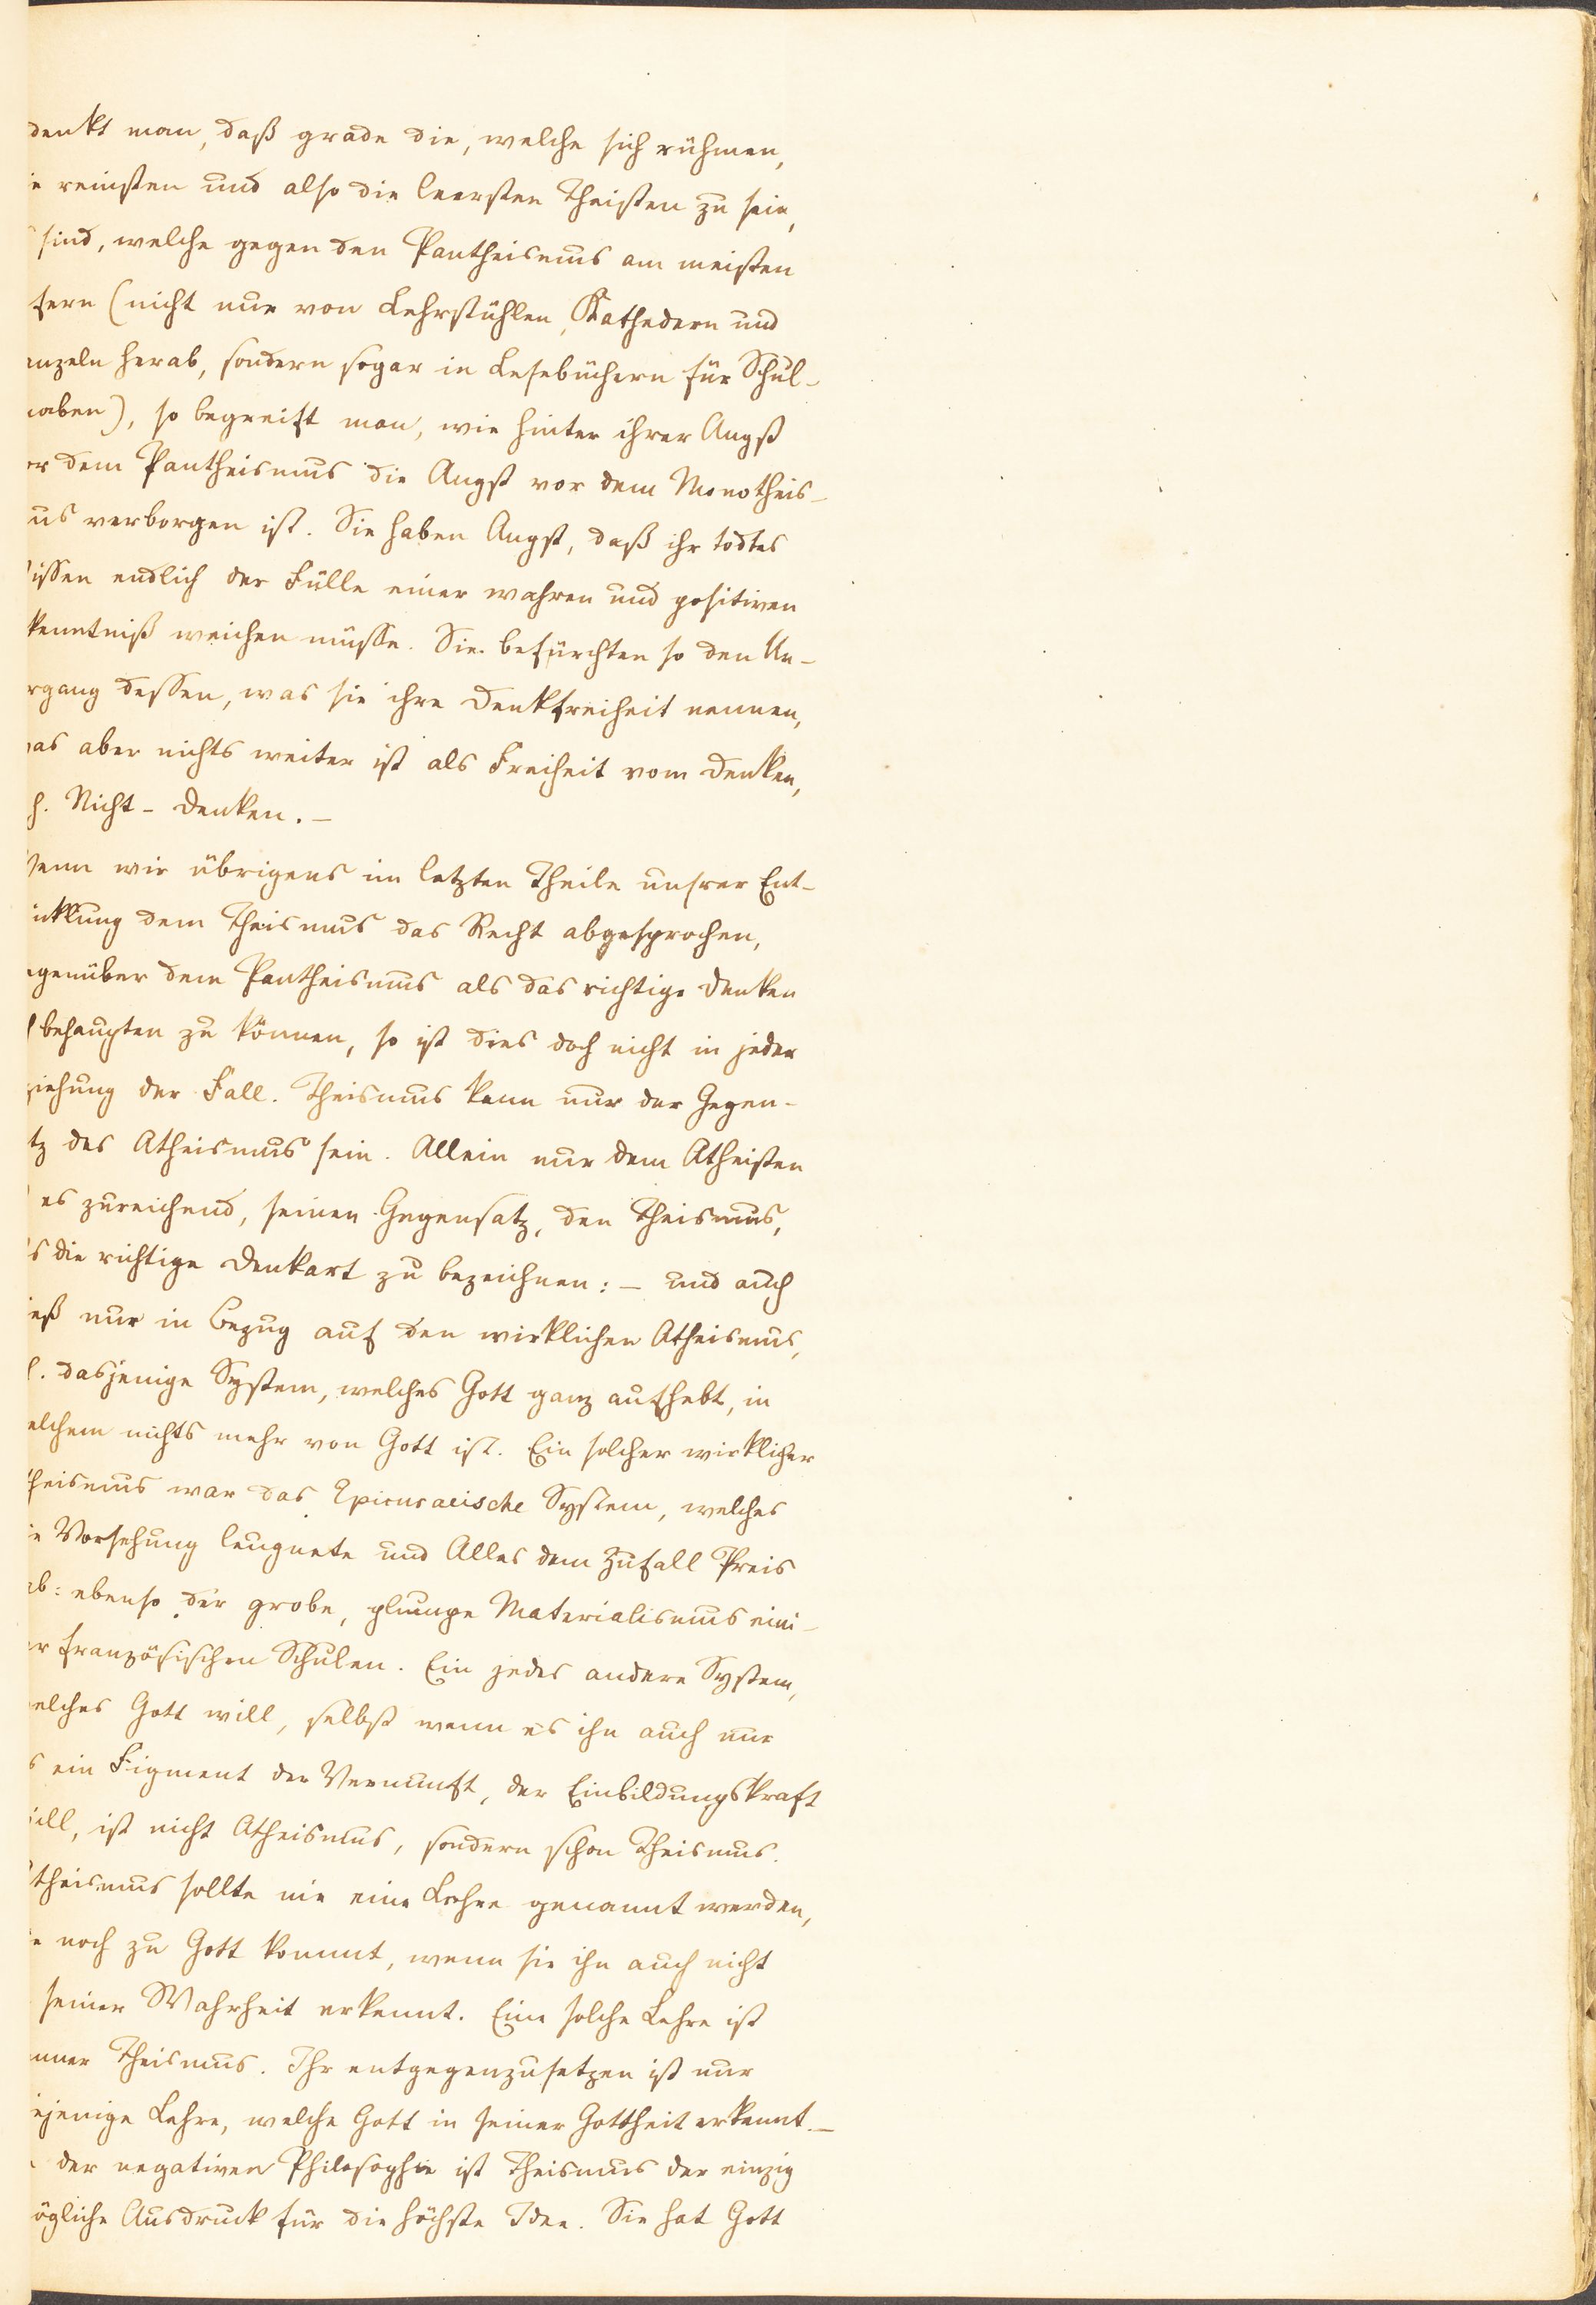 denkt man, daß grade die, welche sich rühmen,
e reinsten und also die leersten Theisten zu sein,
sind, welche gegen den Pantheismus am meisten
fern (nicht nur von Lehrstühlen, Kathedern und
anzeln herab, sondern sogar in Lesebüchern für Schul-
naben), so begreift man, wie hinter ihrer Angst
or dem Pantheismus die Angst vor dem Monotheis-
us verborgen ist. Sie haben Angst, daß ihr todtes
issen endlich der Fülle einer wahren und positiven
kenntniß weichen müsse. Sie befürchten so den Un-
rgang dessen, was sie ihre Denkfreiheit nennen,
as aber nichts weiter ist als Freiheit vom Denken,
h. Nicht-Denken. –
enn wir übrigens im letzten Theile unsrer Ent-
icklung dem Theismus das Recht abgesprochen,
genüber dem Pantheismus als das richtige Denken
behaupten zu können, so ist dies doch nicht in jeder
ziehung der Fall. Theismus kann nur der Gegen-
tz des Atheismus sein. Allein nur dem Atheisten
es zureichend, seinen Gegensatz, den Theismus,
s die richtige Denkart zu bezeichnen: – und auch
ieß nur in Bezug auf den wirklichen Atheismus,
h. dasjenige System, welches Gott ganz aufhebt, in
elchem nichts mehr von Gott ist. Ein solcher wirklicher
theismus war das Epicuraeische System, welches
ie Vorsehung leugnete und Alles dem Zufall Preis
ab: ebenso der grobe, plumpe Materialismus eini-
er französischen Schulen. Ein jedes andere System,
elches Gott will, selbst wenn es ihn auch nur
s ein Figment der Vernunft, der Einbildungskraft
ill, ist nicht Atheismus, sondern schon Theismus.
theismus sollte nie eine Lehre genannt werden,
e noch zu Gott kommt, wenn sie ihn auch nicht
seiner Wahrheit erkennt. Eine solche Lehre ist
mmer Theismus. Ihr entgegenzusetzen ist nur
iejenige Lehre, welche Gott in seiner Gottheit erkennt. –
der negativen Philosophie ist Theismus der einzig
ögliche Ausdruck für die höchste Idee. Sie hat Gott